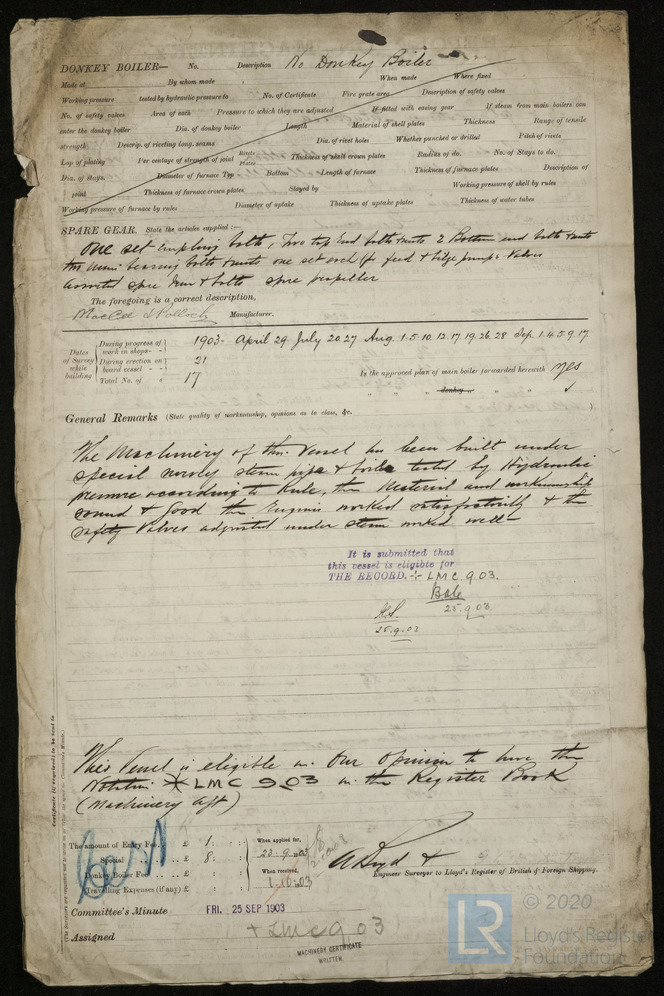 DONKEY BOILER— No. Description No Donkey Boiler
Made at By whom made When made Where fixed
Working pressure tested by hydraulic pressure to No. of Certificate Fire grate area Description of safety valves
No. of safety valves Area of each Pressure to which they are adjusted If fitted with easing gear If steam from main boilers can
enter the donkey boiler Dia. of donkey boiler Length Material of shell plates Thickness Range of tensile
strength Descrip. of riveting long. seams Dia. of rivet holes Whether punched or drilled Pitch of rivets
Lap of plating Per centage of strength of joint Rivets Plates Thickness of shell crown plates Radius of do. No. of Stays to do.
Dia. of stays. Diameter of furnace Top Bottom Length of furnace Thickness of furnace plates Description of
joint Thickness of furnace crown plates Stayed by Working pressure of shell by rules
Working pressure of furnace by rules Diameter of uptake Thickness of uptake plates Thickness of water tubes
SPARE GEAR. State the articles supplied:—
One set coupling bolts, Two top End bolts & nuts 2 Bottom end bolts & nuts
two main bearing bolts & nuts one set each of feed & bilge pump valves
assorted spare iron & bolts spare propeller
The foregoing is a correct description,
MacColl & Pollock Manufacturer.
Dates of Survey while building
During progress of work in shops - - 1903: April 29 July 20 27 Aug. 1.5.10.12.17.19.26.28 Sep. 1.4.5.9.17
During erection on board vessel - - 21
Total No. of 17
Is the approved plan of main boiler forwarded herewith Yes
" " " donkey " " "
General Remarks (State quality of workmanship, opinions as to class, &c.
The Machinery of this Vessel has been built under
special survey steam pipe & boiler tested by Hydraulic
pressure according to Rule, the Material and workmanship
sound & good the Engines worked satisfactorily & the
safety valves adjusted under steam worked well—
It is submitted that
this vessel is eligible for
THE RECORD. + LMC 9.03.
25.9.03
25.9.03
This Vessel is eligible in our opinion to have the
Notation LMC 9 03 in the Register Book
(Machinery aft)
Certificate (if required) to be sent to
The amount of Entry Fee. £ 1 : : When applied for,
Special £ 8 : : 23.9.03
Donkey Boiler Fee £ : : When received,
Travelling Expenses (if any) £ : : 1.10.03
Engineer Surveyor to Lloyd's Register of British & Foreign Shipping.
Committee's Minute FRI. 25 SEP 1903
Assigned + LMC 9 03
MACHINERY CERTIFICATE
WRITTEN.
LR © 2020
Lloyd's Register
Foundation